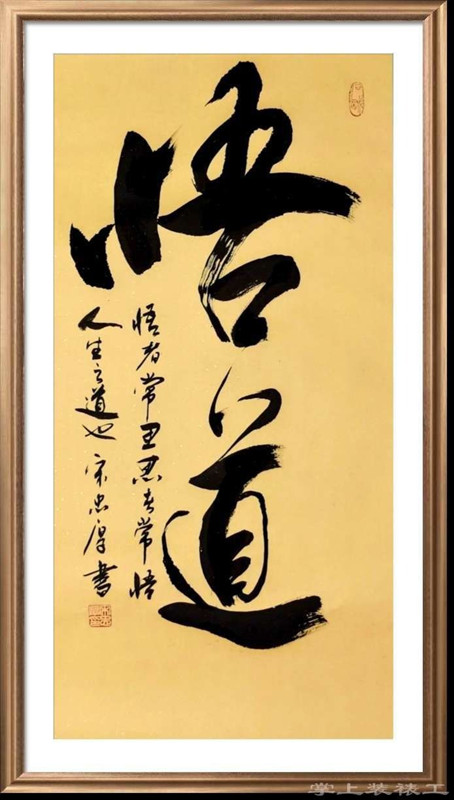 悟道
悟者常思者常悟
人生之道也 宋忠厚書
掌上装裱工